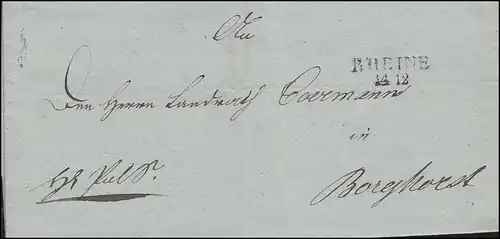 An
RHEINE
14 12
Den Herrn Landrath Coermann
in
Borghorst